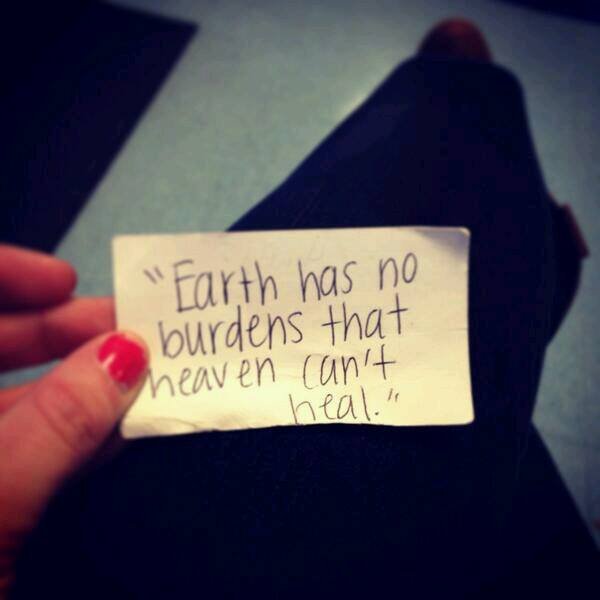 "Earth has no
burdens that
heaven can't
heal."